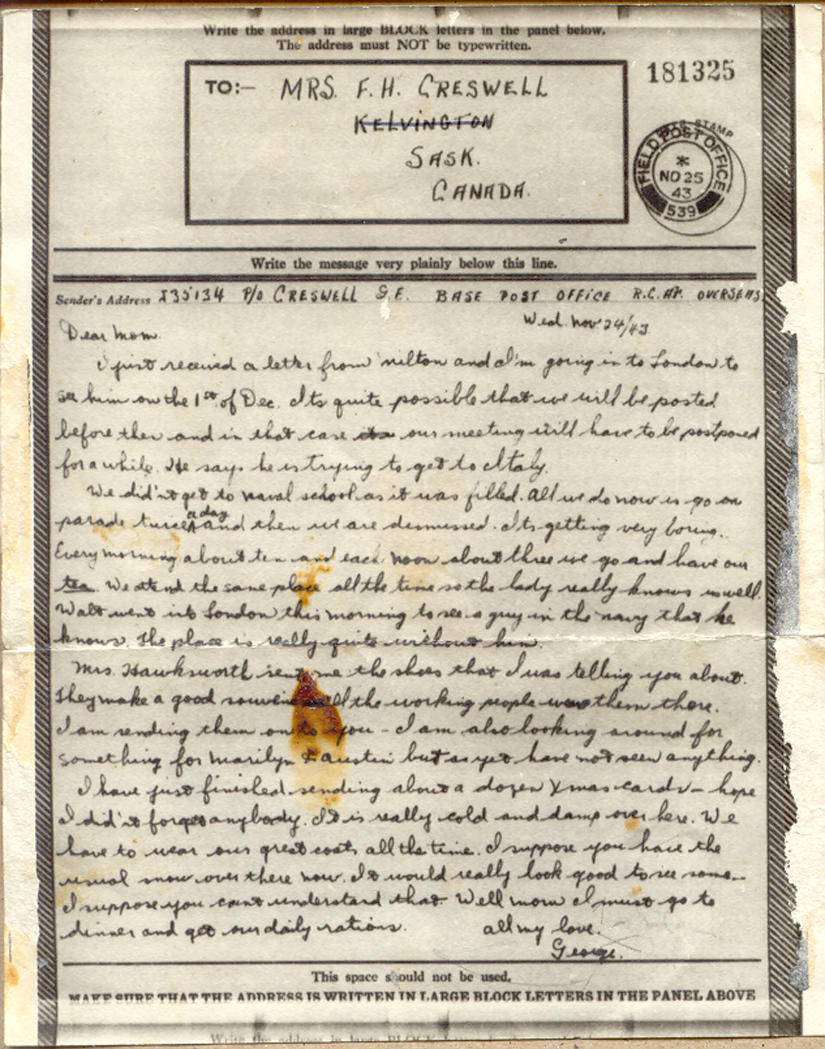 Write the address in large BLOCK letters in the panel below.
The address must NOT be typewritten.
TO:— MRS. F. H. CRESWELL
KELVINGTON
SASK.
CANADA.
181325
FOR STAMP
FIELD POST OFFICE
*
NO 25
43
539
Write the message very plainly below this line.
Sender's Address J35134 P/O CRESWELL G.F. BASE POST OFFICE R.C.AF. OVERSEAS
Wed. Nov 24/43
Dear Mom.
I just received a letter from Milton and I'm going in to London to
see him on the 1st of Dec. Its quite possible that we will be posted
before then and in that case its our meeting will have to be postponed
for a while. He says he is trying to get to Italy.
We did'nt get to naval school as it was filled. All we do now is go on
parade twice a day and then we are dismissed. Its getting very boring.
Every morning about ten and each noon about three we go and have our
tea. We attend the same place all the time so the lady really knows us well.
Walt went into London this morning to see a guy in the navy that he
knows. The place is really quite without him.
Mrs. Hawksworth sent me the shoes that I was telling you about.
They make a good souvenir all the working people wear them there.
I am sending them on to you - I am also looking around for
something for Marilyn & Austin but as yet have not seen anything.
I have just finished sending about a dozen Xmas cards - hope
I did'nt forget anybody. It is really cold and damp over here. We
have to wear our great coats all the time. I suppose you have the
usual snow over there now. It would really look good to see some -
I suppose you cant understand that. Well mom I must go to
dinner and get our daily rations. all my love.
George.
This space should not be used.
MAKE SURE THAT THE ADDRESS IS WRITTEN IN LARGE BLOCK LETTERS IN THE PANEL ABOVE
Write the address in large BLOCK